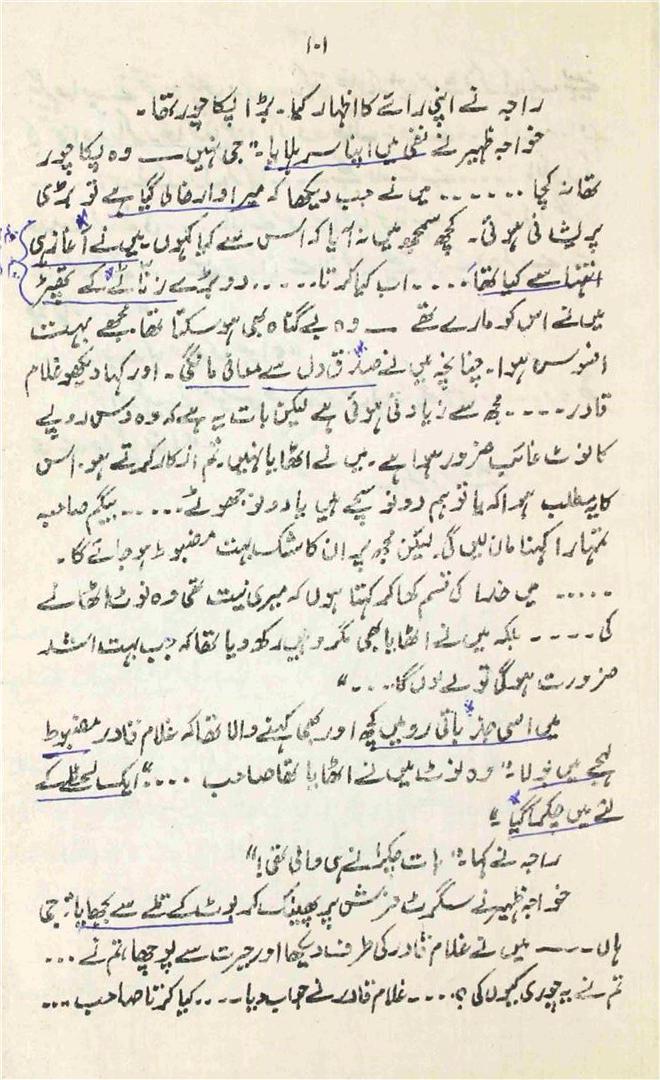 ۱۰۱
راجہ نے اپنی رائے کا اظہار کیا۔ بڑا پکا چور تھا۔
خواجہ ظہیر نے نفی میں اپنا سر ہلایا۔ "جی نہیں ــــ وہ پکا چور
تھا نہ کچا ۔۔۔۔۔۔ میں نے جب دیکھا کہ میرا وار خالی گیا ہے تو بڑی
پریشانی ہوئی۔ کچھ سمجھ میں نہ آیا کہ اس سے کیا کہوں۔ میں نے آغاز ہی
انتہا سے کیا تھا ۔۔۔۔ اب کیا کرتا ۔۔۔۔۔ دو بڑے زناٹے کے تھپڑ
میں نے اس کو مارے تھے ــــ وہ بے گناہ بھی ہو سکتا تھا۔ مجھے بہت
افسوس ہوا۔ چنانچہ میں نے صدق دل سے معافی مانگی۔ اور کہا دیکھو غلام
قادر ۔۔۔۔ مجھ سے زیادتی ہوئی ہے لیکن بات یہ ہے کہ وہ دس روپے
کا نوٹ غائب ضرور ہوا ہے۔ میں نے اٹھایا نہیں۔ تم انکار کرتے ہو۔ اس
کا یہ مطلب ہوا کہ یا تو ہم دونو سچے ہیں یا دونو جھوٹے ۔۔۔۔۔ بیگم صاحبہ
تمہارا کہنا مان لیں گی۔ لیکن مجھ پر ان کا شک بہت مضبوط ہو جائے گا۔
۔۔۔۔۔ میں خدا کی قسم کھا کر کہتا ہوں کہ میری نیت تھی وہ نوٹ اٹھانے
کی ۔۔۔۔ بلکہ میں نے اٹھایا بھی مگر وہیں رکھ دیا تھا کہ جب بہت اشد
ضرورت ہوگی تو لے لوں گا ۔۔۔۔"
میں اسی جذباتی رو میں کچھ اور بھی کہنے والا تھا کہ غلام قادر مضبوط
لہجے میں بولا۔ "وہ نوٹ میں نے اٹھایا تھا صاحب ۔۔۔۔" ایک لحظے کے
لئے میں چکرا گیا۔"
راجہ نے کہا۔ "بات چکرانے ہی والی تھی!"
خواجہ ظہیر نے سگرٹ فرش پر پھینک کر بوٹ کے تلے سے بجھایا۔ "جی
ہاں ــــ میں نے غلام قادر کی طرف دیکھا اور حیرت سے پوچھا، تم نے ۔۔۔
تم نے یہ چوری کیوں کی؟ ۔۔۔۔ غلام قادر نے جواب دیا ۔۔۔۔ کیا کرتا صاحب ۔۔۔۔